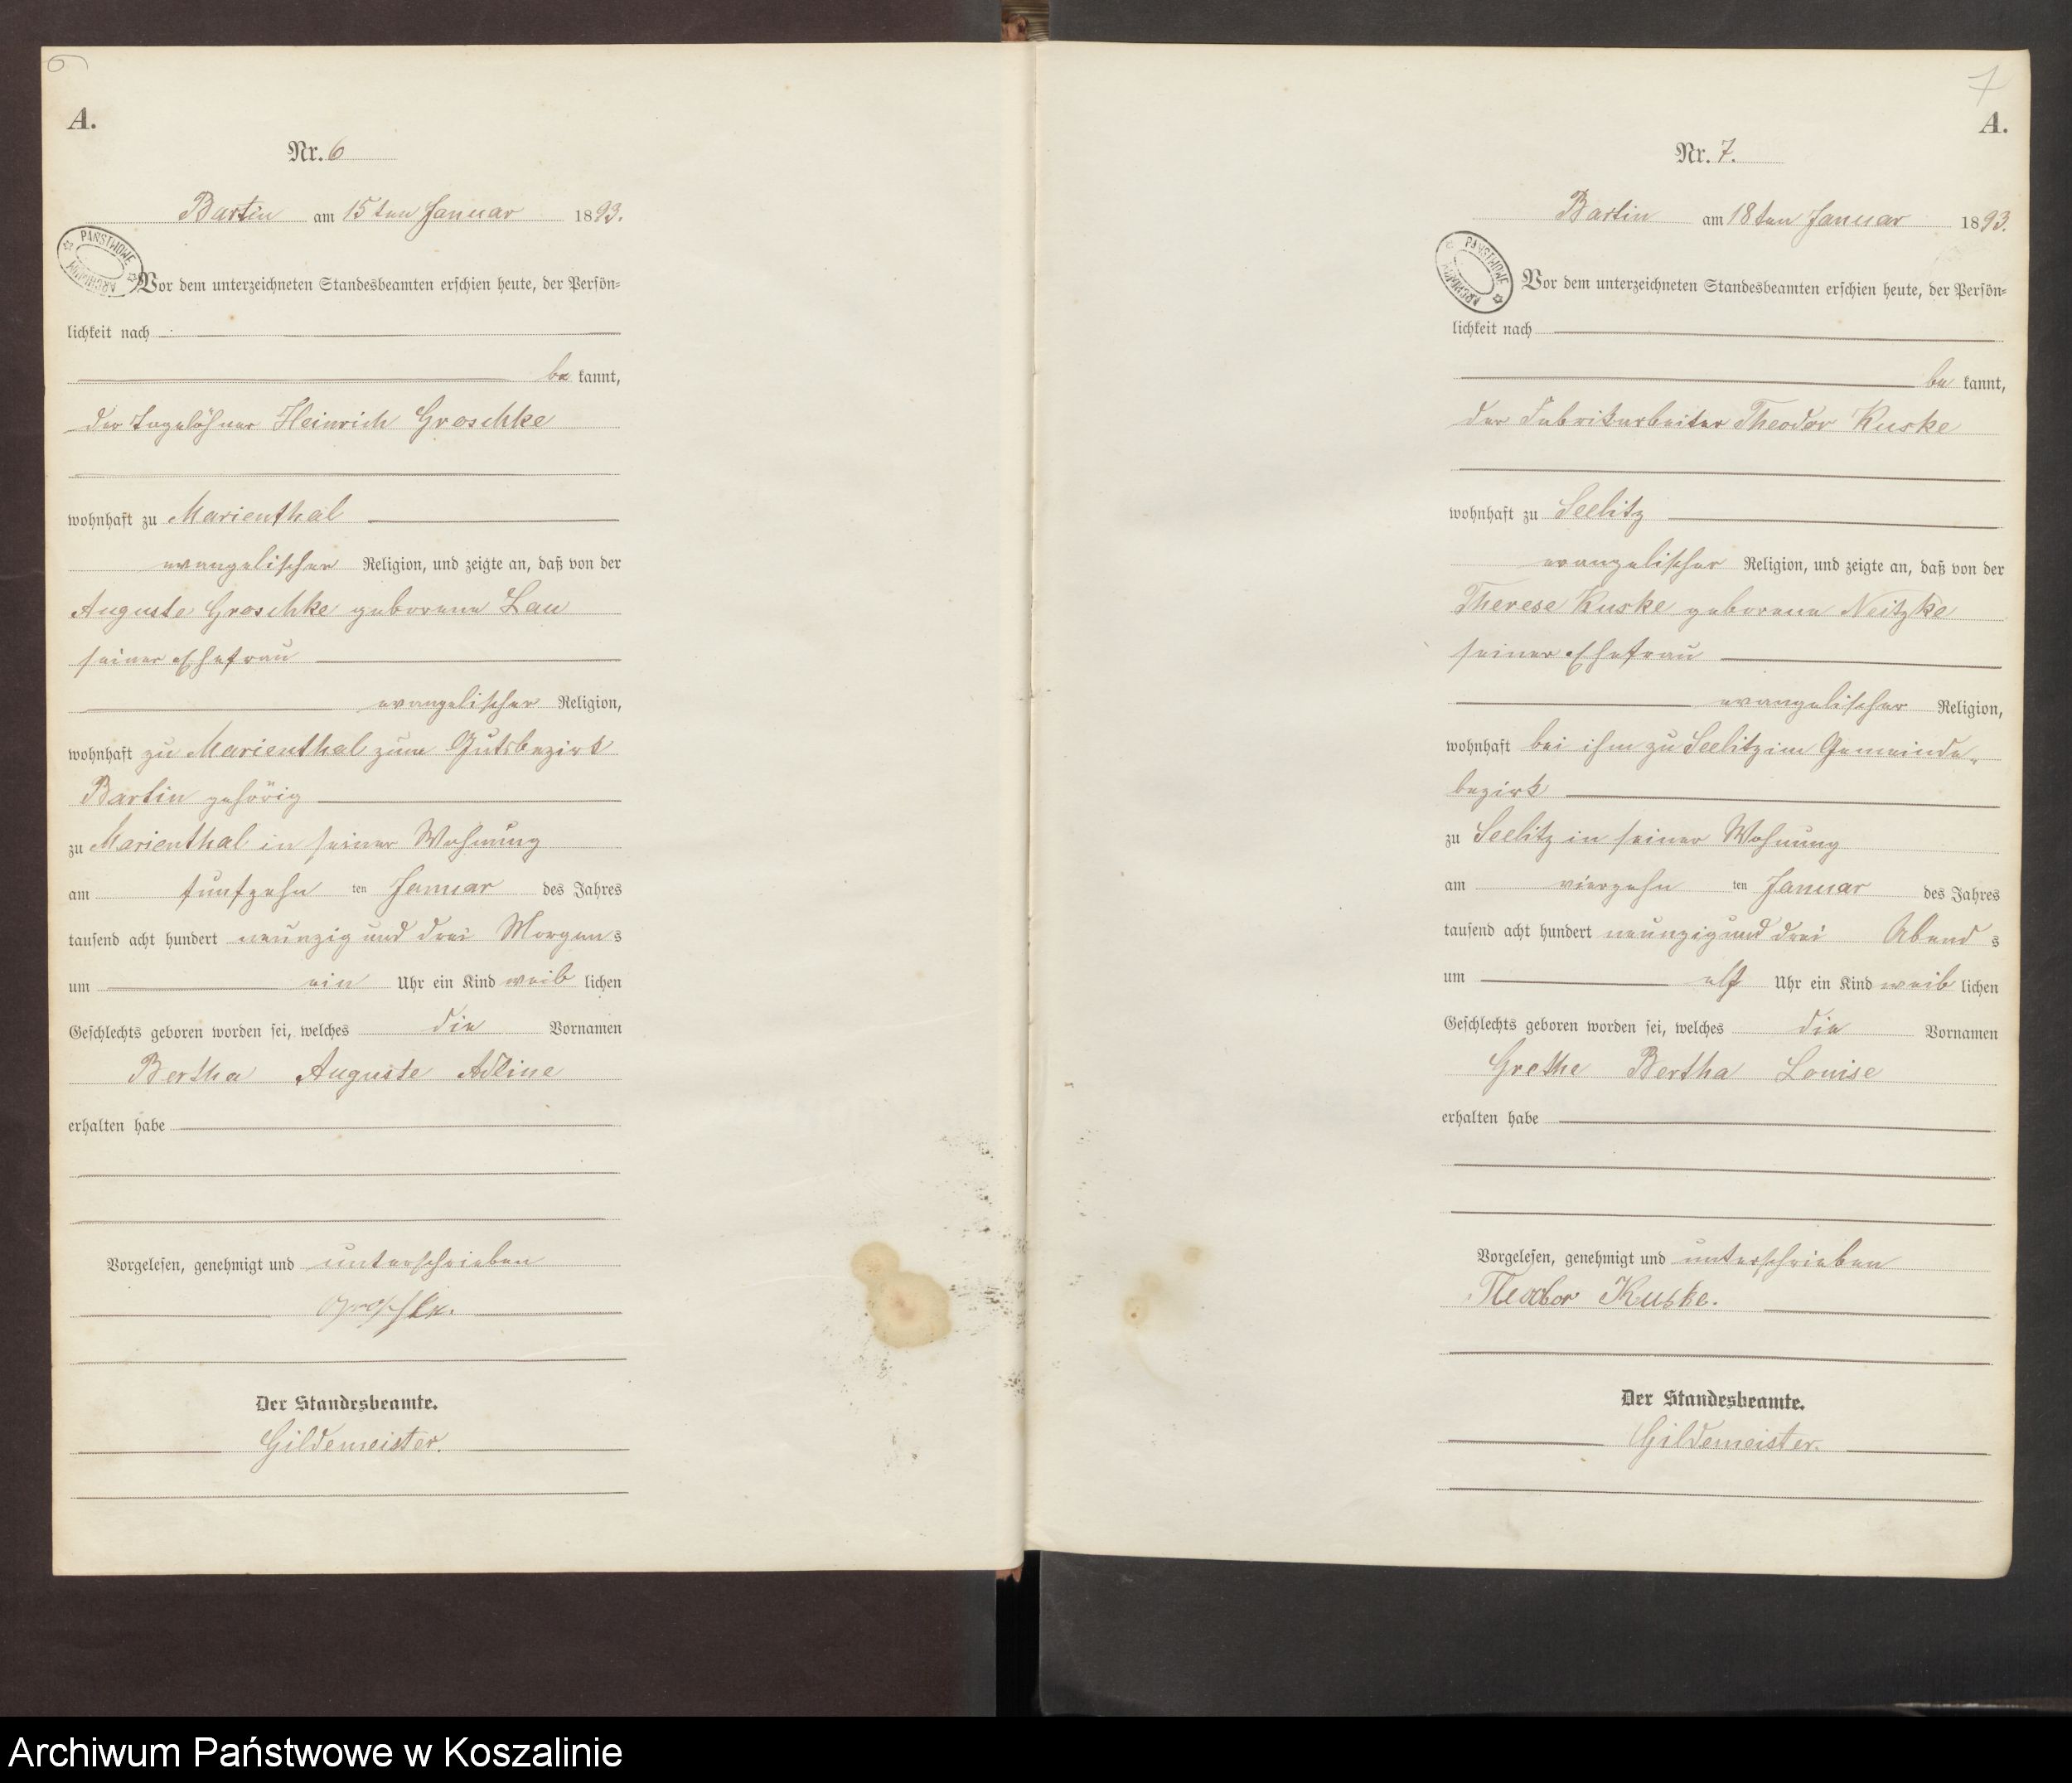 6
A.
Nr. 6
Bartin am 15ten Januar 1893.
PAŃSTWOWE ARCHIWUM
Vor dem unterzeichneten Standesbeamten erschien heute, der Persön-
lichkeit nach
be kannt,
der Tagelöhner Heinrich Groschke
wohnhaft zu Marienthal
evangelischer Religion, und zeigte an, daß von der
Auguste Groschke geborene Lau
seiner Ehefrau
evangelischer Religion,
wohnhaft zu Marienthal zum Gutsbezirk
Bartin gehörig
zu Marienthal in seiner Wohnung
am fünfzehn ten Januar des Jahres
tausend acht hundert neunzig und drei Morgens
um ein Uhr ein Kind weib lichen
Geschlechts geboren worden sei, welches die Vornamen
Bertha Auguste Adline
erhalten habe
Vorgelesen, genehmigt und unterschrieben
Groschke.
Der Standesbeamte.
Gildemeister.
7
A.
Nr. 7.
Bartin am 18ten Januar 1893.
PAŃSTWOWE ARCHIWUM
Vor dem unterzeichneten Standesbeamten erschien heute, der Persön-
lichkeit nach
be kannt,
der Fabrikarbeiter Theodor Kuske
wohnhaft zu Seelitz
evangelischer Religion, und zeigte an, daß von der
Therese Kuske geborene Neitzke
seiner Ehefrau
evangelischer Religion,
wohnhaft bei ihm zu Seelitz im Gemeinde-
bezirk
zu Seelitz in seiner Wohnung
am vierzehn ten Januar des Jahres
tausend acht hundert neunzig und drei Abends
um elf Uhr ein Kind weib lichen
Geschlechts geboren worden sei, welches die Vornamen
Grethe Bertha Louise
erhalten habe
Vorgelesen, genehmigt und unterschrieben
Theodor Kuske.
Der Standesbeamte.
Gildemeister.
Archiwum Państwowe w Koszalinie